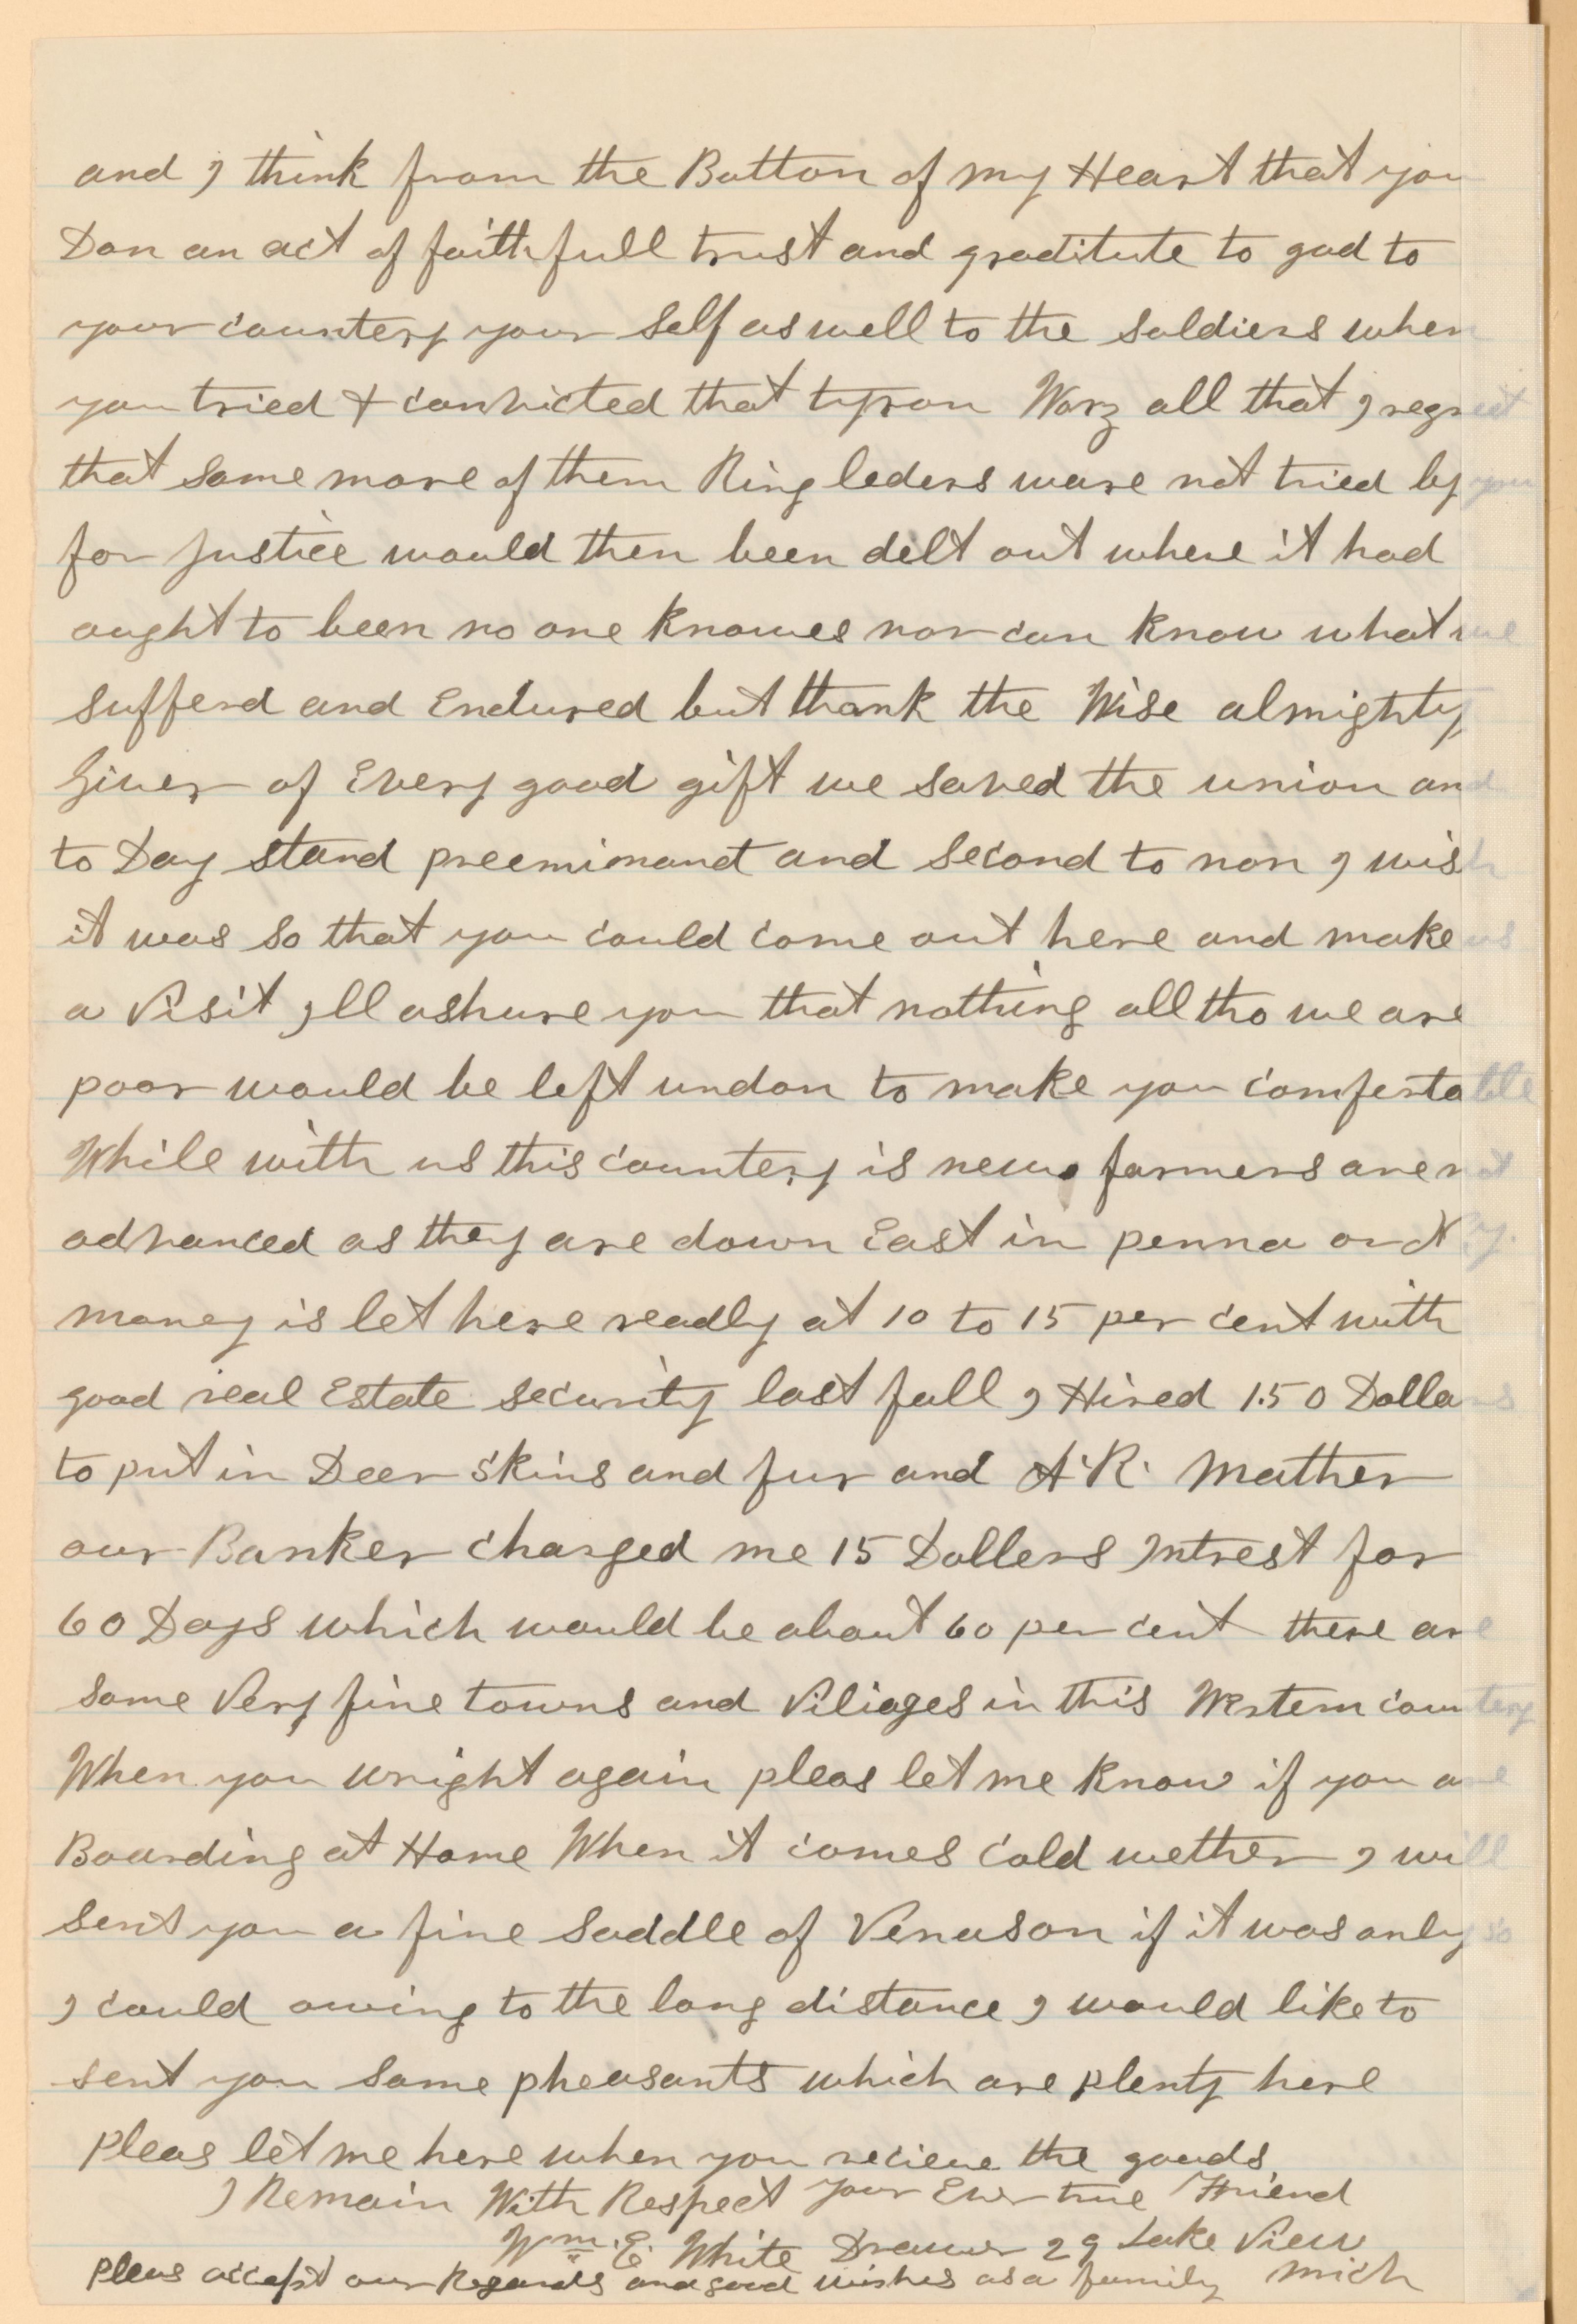 and I think from the Bottom of my Heart that you
Don an act of faithfull trust and graditute to god to
your countery your self as well to the soldiers when
you tried & convicted that tyron Worz all that I regret
that some more of them Ring leders ware not tried by you
for justice would then been delt out where it had
ought to been no one knowes nor can know what we
sufferd and Endured but thank the Wise almighty
Giver of Every good gift we saved the union and
to Day stand preeminant and second to non I wish
it was so that you could come out here and make us
a Visit I'll ashure you that nothing alltho we are
poor would be left undon to make you comfertable
While with us this countery is new farmers are not
advanced as they are down East in penna or N.y.
money is let here readly at 10 to 15 per cent with
good real Estate security last fall I Hired 1.50 Dollars
to put in Deer skins and fur and A.R. Mather
our Banker charged me 15 Dollers Intrest for
60 Days which would be about 60 per cent there are
some Very fine towns and Viliages in this Western countery
When you wright again pleas let me know if you are
Boarding at Home When it comes cold wether I will
sent you a fine saddle of Venuson if it was only so
I could owing to the long distance I would like to
sent you some pheasants which are plenty here
pleas let me here when you recieve the goods
I Remain With Respect Your Ever true Friend
Wm. E. White Drawer 29 Lake View
pleas accept our Regards and good wishes as a family Mich